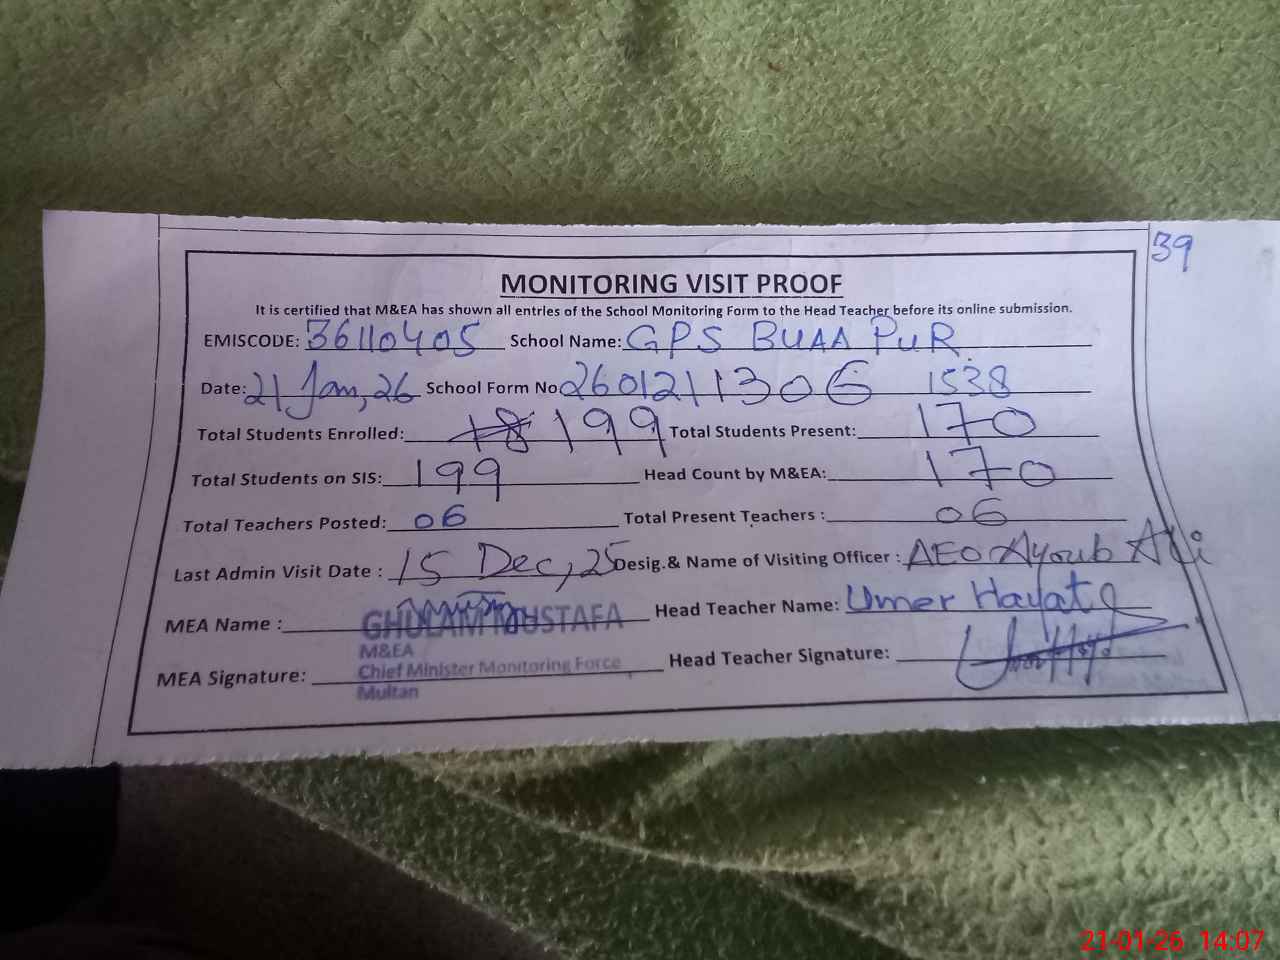 39
MONITORING VISIT PROOF
It is certified that M&EA has shown all entries of the School Monitoring Form to the Head Teacher before its online submission.
EMISCODE: 36110405 School Name: GPS BUAA PUR
Date: 21 Jan, 26 School Form No 2601211306 1538
Total Students Enrolled: 199 Total Students Present: 170
Total Students on SIS: 199 Head Count by M&EA: 170
Total Teachers Posted: 06 Total Present Teachers : 06
Last Admin Visit Date : 15 Dec, 25 Desig.& Name of Visiting Officer : AEO Ayoub Ali
MEA Name : GHULAM MUSTAFA Head Teacher Name: Umer Hayat
M&EA
MEA Signature: Chief Minister Monitoring Force Head Teacher Signature:
Multan
21-01-26 14:07